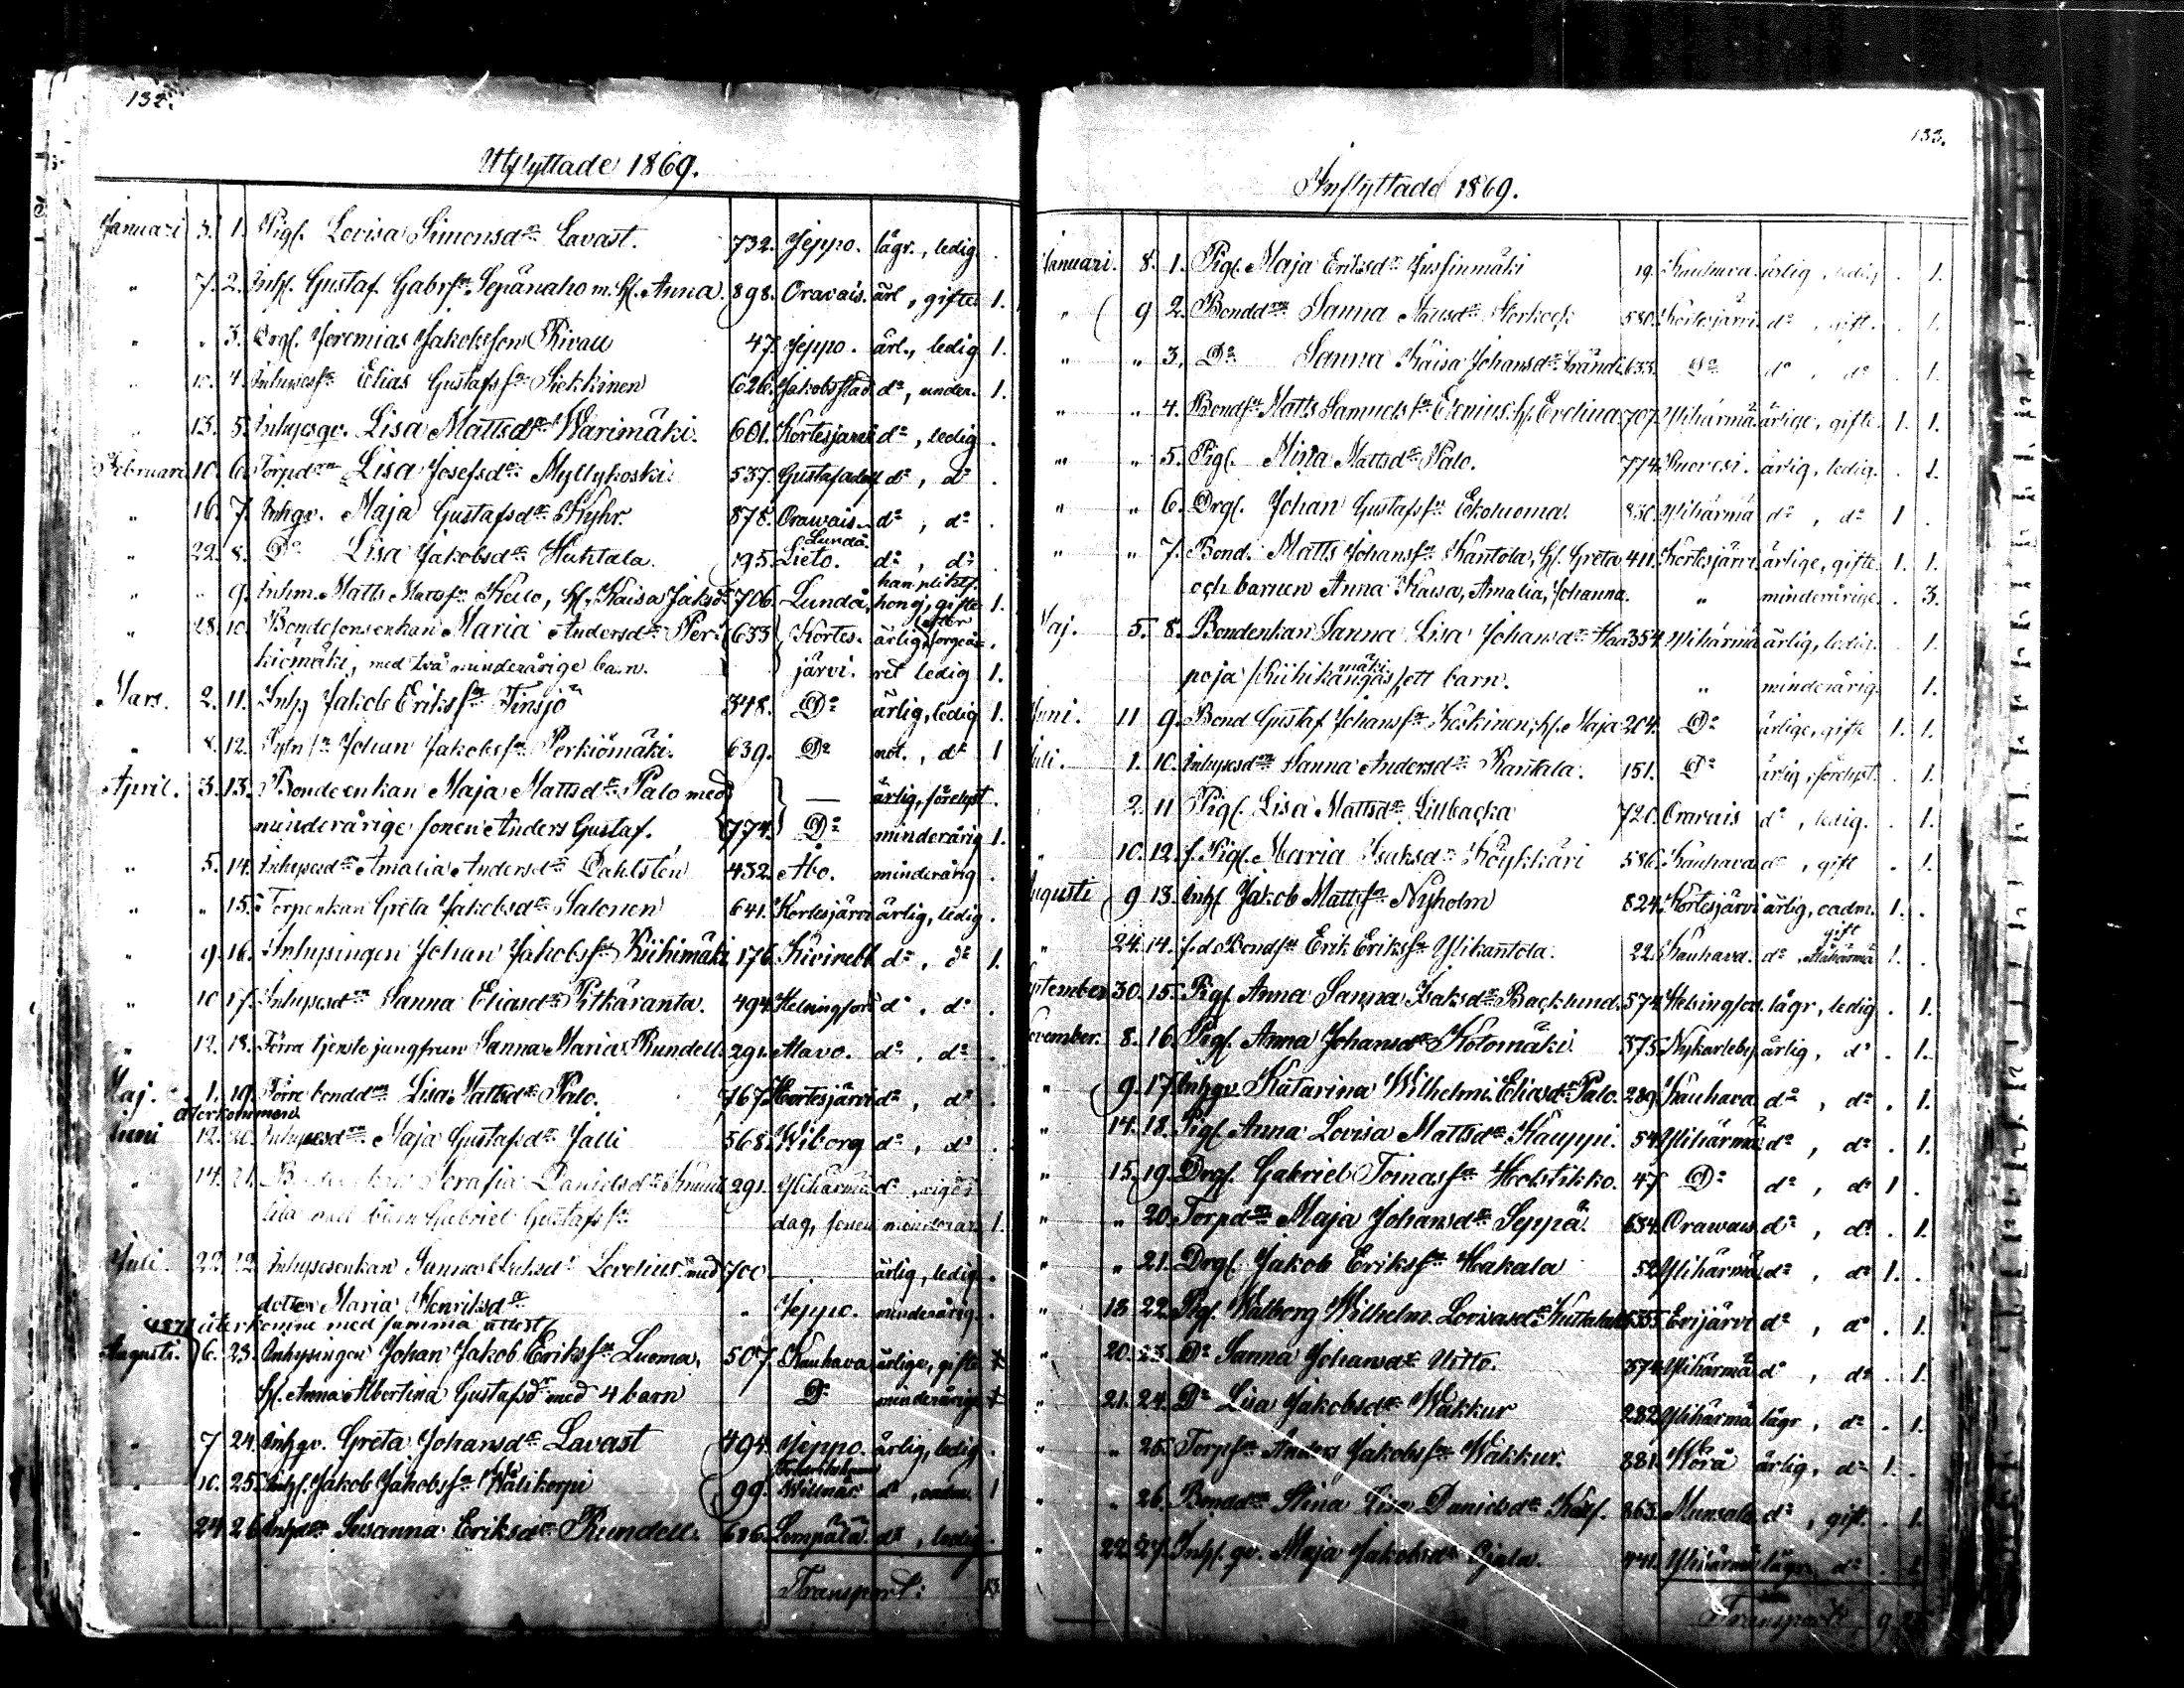 132.
Utflyttade 1869.
Januari 3. 1. Pig. Lovisa Simonsdr Lavast. 732. Jeppo. lägr., ledig .
" 7. 2. Inh. Gustaf Gabrsn Sepänaho m. H. Anna. 898. Oravais. ärl, gifte 1.
" " 3. Drg. Jeremias Jakobsson Kivau 47. Jeppo. ärl., ledig 1.
" 10. 4. Inhysessn Elias Gustafssn Siekkinen 626. Jakobstad do, under. 1.
" 13. 5. Inhysesqv. Lisa Mattsdr Warimäki. 601. Kortesjärvi do, ledig .
Februari 10. 6. Torpdrn Lisa Josefsdr Myllykoski 537. Gustafadolf do, do .
" 16. 7. Inhqv. Maja Gustafsdr Kyhr. 878. Orawais. do, do .
" 22. 8. Do Lisa Jakobsdr Huhtala. 195. Lieto. do, do .
" " 9. Inhm. Matts Mattssn Keilo, H. Kaisa Jaksdr 706. Lundå, hon ej, gifte 1.
" 28. 10. Bondesonsenkan Maria Andersdr Per- 633 Kortes- ärlig
kiömäki, med två minderårige barn. järvi. ledig 1.
Mars. 2. 11. Inh. Jakob Erikssn Finsjö 348. Do ärlig, ledig 1.
" 8. 12. Johan Jakobssn Perkiömäki. 639. Do not., do 1
April. 3. 13. Bondeenkan Maja Mattsdr Palo med — ärlig, förelyst .
minderårige sonen Anders Gustaf. 774. Do minderårig 1.
" 5. 14. Inhysesdr Amalia Andersdr Dahlstén 432. Åbo. minderårig .
" " 15. Torpenkan Greta Jakobsdr Salonen 641. Kortesjärvi ärlig, ledig .
" 9. 16. Inhysingen Johan Jakobssn Kiihimäki 176. Kivinebb do, do 1.
" 10 17. Inhysesdrn Sanna Eliasdr Pitkäranta. 494. Helsingfors do, do .
" 12. 18. Förra tjenstejungfrun Sanna Maria Rundell. 291. Alavo. do, do .
Maj. 1. 19. Förre bonddrn Lisa Mattsdr Palo. 767. Kortesjärvi do, do .
återkommen
Juni 12. 20. Inhysesdrn Maja Gustafsdr Jalli 568. Wiborg do, do .
" 14. 21. Serafia Danielsdr 291. Ylihärmä do
med barn Gabriel Gustafssn dag, sonen minderår. 1.
Juli. 22. 22. Inhysesenkan Sanna Lovelius med 700 ärlig, ledig .
dotter Maria Henriksdr " Jeppo. minderårig .
1871 återkomne med samma attest
Augusti. 6. 23. Inhysingen Johan Jakob Erikssn Luoma, 507. Kauhava ärlige, gifte 1
H. Anna Albertina Gustafsdr med 4 barn Do minderårige 1
" 7 24. Inhqv. Greta Johansdr Lavast 494. Jeppo. ärlig, ledig .
" 10. 25. Inh. Jakob Jakobssn Wälikorpi 99. Willnäs do 1
" 24. 26. Inhdr Susanna Eriksdr Rundell. 686. Lempälä. do, ledig .
Transport: 13.
133.
Inflyttade 1869.
Januari. 8. 1. Pig. Maja Eriksdr Jussinmäki 19. Kauhava ärlig, ledig . 1.
" 9 2. Bonddrn Sanna Mattsdr Storkock 580. Kortesjärvi do, gift . 1.
" " 3. Do Sanna Kaisa Johansdr 633. Do do, do . 1.
" " 4. Bondsn Matts Samuelssn Elenius, H. Evelina 707. Ylihärmä ärlige, gifte 1. 1.
" " 5. Pig. Mina Mattsdr Palo. 774. Ruovesi. ärlig, ledig . 1.
" " 6. Drg. Johan Gustafssn Ekoluoma. 830. Ylihärmä do, do 1 .
" " 7. Bond. Matts Johanssn Kantola, H. Greta 411. Kortesjärvi ärlige, gifte. 1. 1.
och barnen Anna Kaisa, Amalia, Johanna. " minderårige . 3.
Maj. 5. 8. Bondenkan Sanna Lisa Johansdr Haa- 354. Ylihärmä ärlig, ledig . 1.
poja /Kiihikangas mäki/, ett barn. " minderårig . 1.
Juni. 11 9. Bond Gustaf Johanssn Koskinen, H. Maja 204. Do ärlige, gifte 1. 1.
Juli. 1. 10. Inhysesdrn Sanna Andersdr Rantala. 151. Do ärlig, förelyst. . 1.
" 2. 11 Pig. Lisa Mattsdr Lillbacka 720. Oravais do, ledig . 1.
" 10. 12. f. Pig. Maria Isaksdr Köykkäri 586. Kauhava do, gift . 1.
Augusti 9 13. Inh. Jakob Mattssn Nyholm 824. Kortesjärvi ärlig, oadm. 1. .
" 24. 14. f.d. Bondsn Erik Erikssn Ylikantola. 22. Kauhava. do, gift 1. .
September 30. 15. Pig. Anna Sanna Isaksdr Backlund. 574. Helsingfors. lägr, ledig . 1.
November. 8. 16. Pig. Anna Johansdr Kolomäki. 375. Nykarleby ärlig, do . 1.
" 9. 17. Inhqv. Katarina Wilhelmi. Eliasdr Palo. 289. Kauhava do, do . 1.
" 14. 18. Pig. Anna Lovisa Mattsdr Kauppi. 54. Ylihärmä do, do . 1.
" 15. 19. Drg. Gabriel Tomassn Holstikko. 47. Do do, do 1 .
" " 20. Torpdrn Maja Johansdr Seppä. 634. Orawais. do, do . 1.
" " 21. Drg. Jakob Erikssn Hakala 52. Ylihärmä do, do 1. .
" 18 22. Pig. Walborg Wilhelm. Lovisasdr 535. Evijärvi do, do . 1.
" 20. 23. Do Sanna Johansdr Uitto. 374. Ylihärmä do, do . 1.
" 21. 24. Do Lisa Jakobsdr Wäkkur 282. Ylihärmä lägr, do . 1.
" " 25. Torpsn Anders Jakobssn Wäkkur. 881. Wörå ärlig, do 1. .
" " 26. Bonddrn Stina Lisa Danielsdr 863. Munsala do, gift . 1.
" 22. 27. Inh. qv. Maja Jakobsdr Ojala. 441. Ylihärmä lägr. do . 1.
Transport 9.